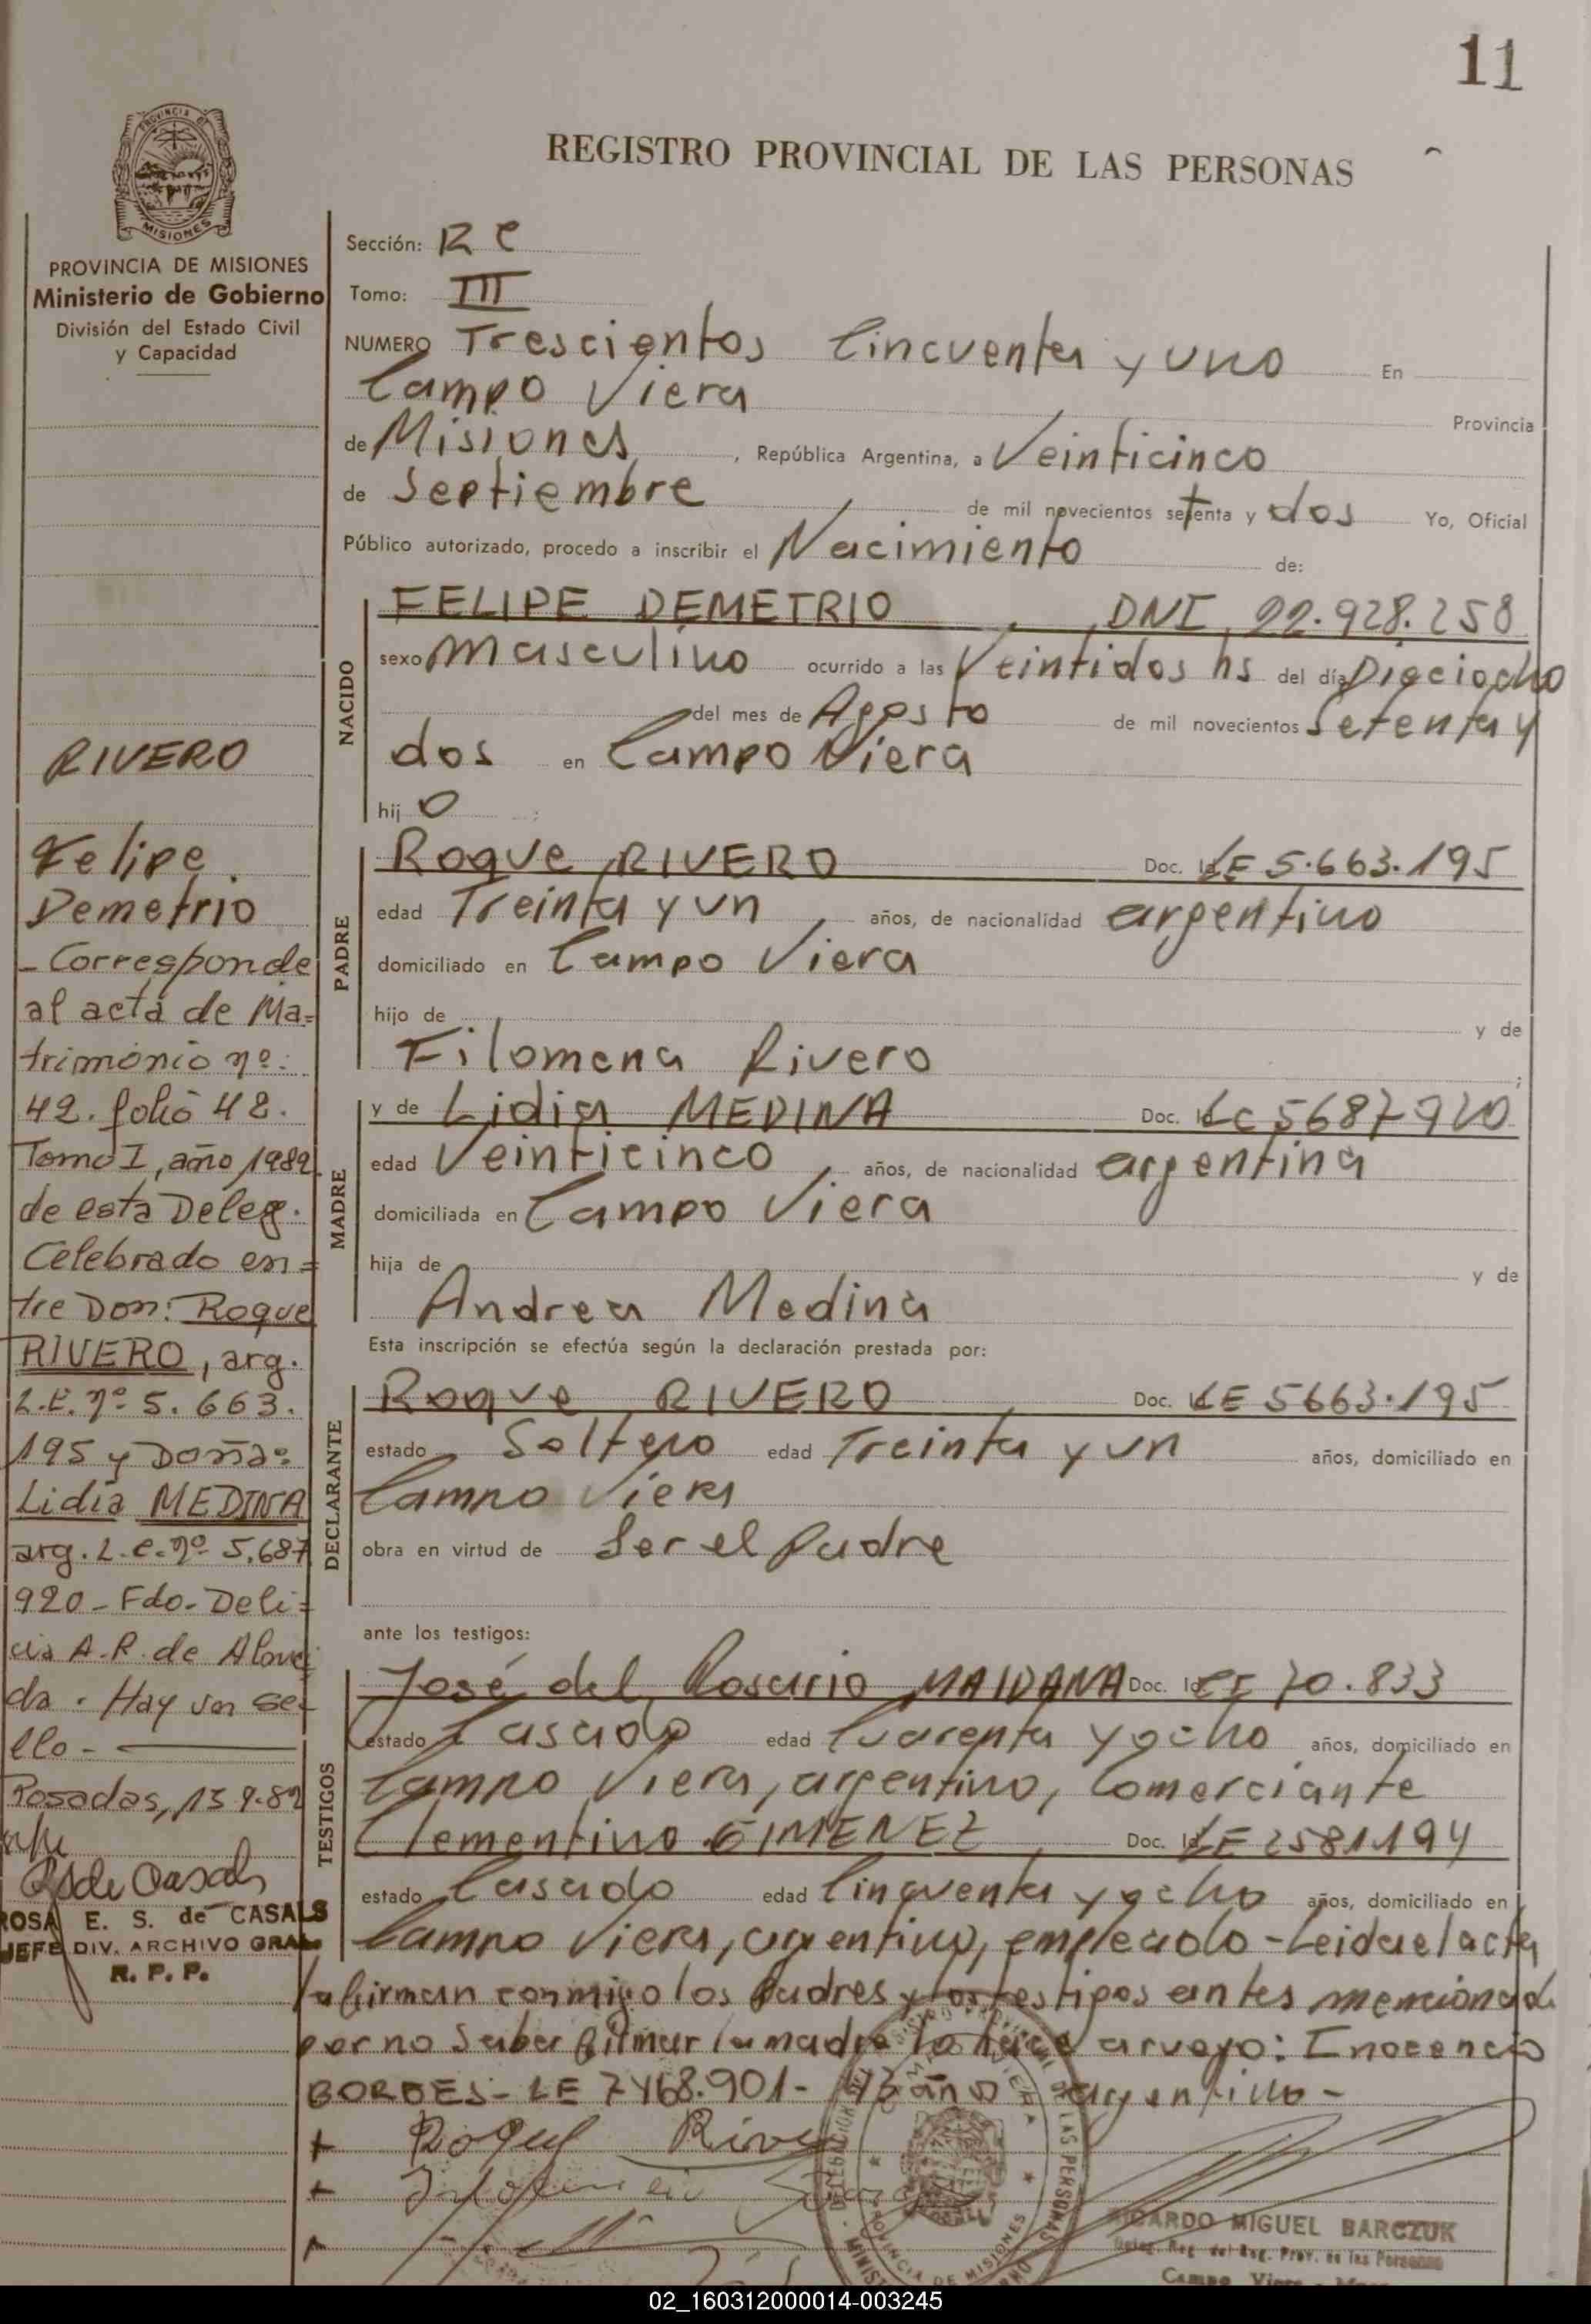 11
REGISTRO PROVINCIAL DE LAS PERSONAS
PROVINCIA DE MISIONES
Ministerio de Gobierno
División del Estado Civil
y Capacidad
Sección: R C
Tomo: III
NUMERO Trescientos Cincuenta y uno En
Campo Viera Provincia
de Misiones, República Argentina, a Veinticinco
de Septiembre de mil novecientos setenta y dos Yo, Oficial
Público autorizado, procedo a inscribir el Nacimiento de:
NACIDO
FELIPE DEMETRIO, DNI 22.928.258
sexo Masculino ocurrido a las Veintidos hs del día Dieciocho
del mes de Agosto de mil novecientos Setenta y
dos en Campo Viera
hij o
PADRE
Roque RIVERO Doc. Id LE 5.663.195
edad Treinta y un, años, de nacionalidad argentino
domiciliado en Campo Viera
hijo de y de
Filomena Rivero ;
MADRE
y de Lidia MEDINA Doc. Id LC 5687920
edad Veinticinco, años, de nacionalidad argentina
domiciliada en Campo Viera
hija de y de
Andrea Medina
Esta inscripción se efectúa según la declaración prestada por:
DECLARANTE
Roque RIVERO Doc. Id LE 5663.195
estado Soltero edad Treinta y un años, domiciliado en
Campo Viera
obra en virtud de Ser el Padre
ante los testigos:
TESTIGOS
José del Rosario MAIDANA Doc. Id 70.833
estado Casado edad Cuarenta y ocho años, domiciliado en
Campo Viera, argentino, Comerciante
Clementino GIMENEZ, Doc. Id LE 2581194
estado Casado edad Cincuenta y ocho años, domiciliado en
Campo Viera, argentino, empleado - Leida el acta
la firman conmigo los Padres y los testigos antes mencionad
por no Saber firmar la madre lo hace a ruego: Inocencio
BORGES - LE 7468.901 - 43 años argentino -
Roque Rivero
RICARDO MIGUEL BARCZUK
Deleg. Reg. del Reg. Prov. de las Personas
Campo Viera
RIVERO
Felipe
Demetrio
- Corresponde
al acta de Ma=
trimonio nº:
42. folio 42.
Tomo I, año 1982.
de esta Deleg.
Celebrado en=
tre Don: Roque
RIVERO, arg.
L.E. nº 5.663.
195 y Doña:
Lidia MEDINA
arg. L.C. nº 5.687
920 - Fdo - Deli=
cia A.R. de Alons
da. Hay un se=
llo -
Posadas, 15 9-82
ROSA E. S. de CASALS
JEFE DIV. ARCHIVO GRAL
R. P. P.
02_160312000014-003245